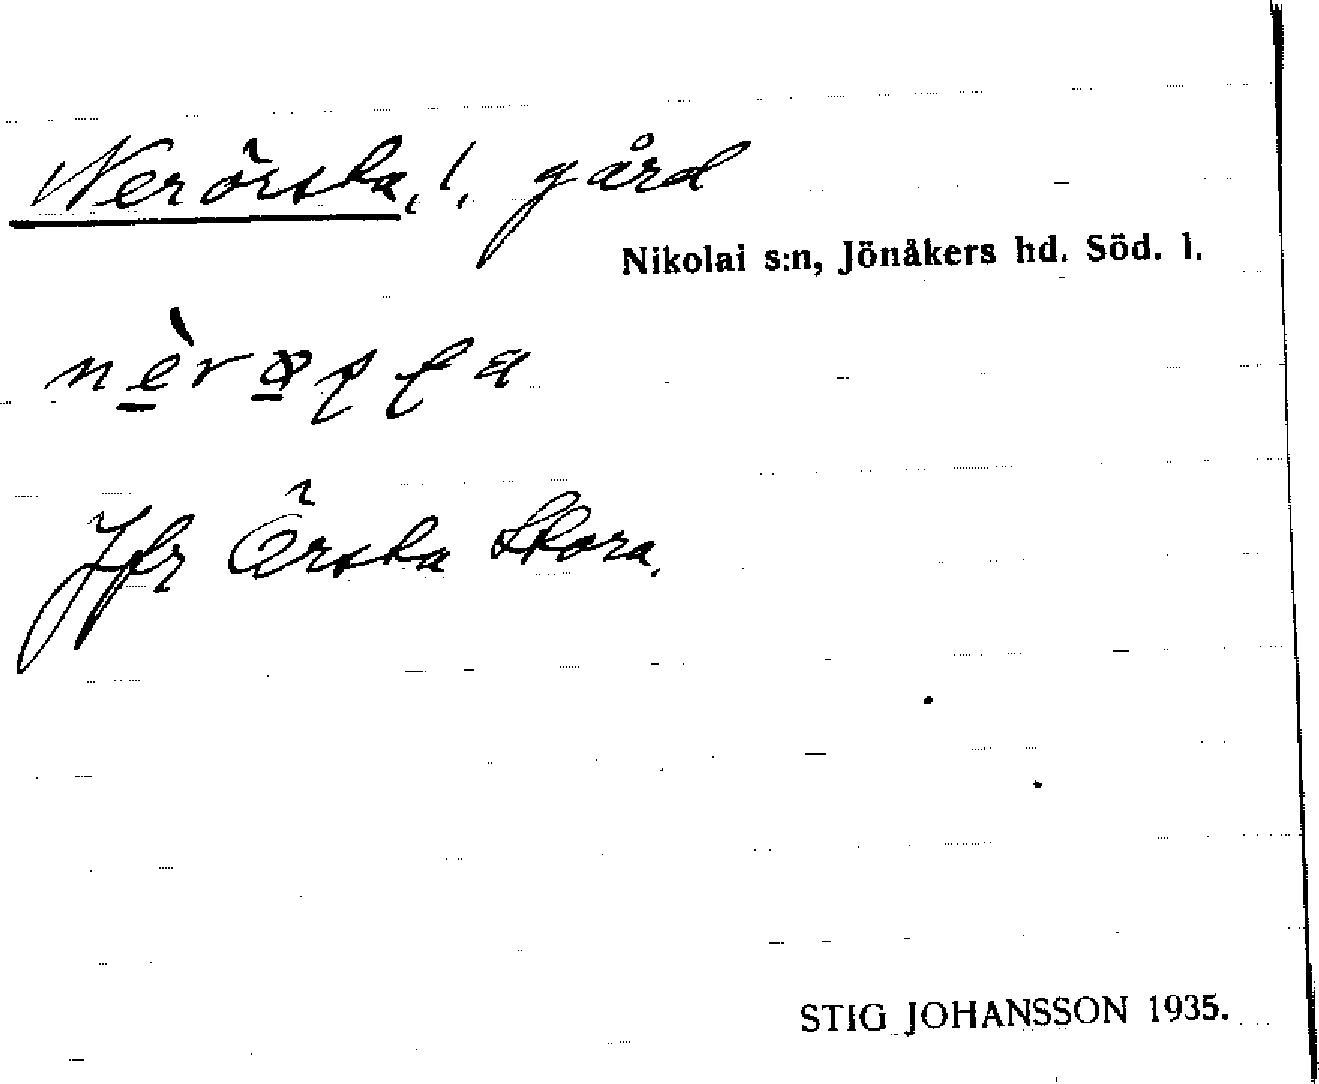 Nerörska, l. gård
Nikolai s:n, Jönåkers hd. Söd. l.
Jfr Örska Stora.
STIG JOHANSSON 1935.